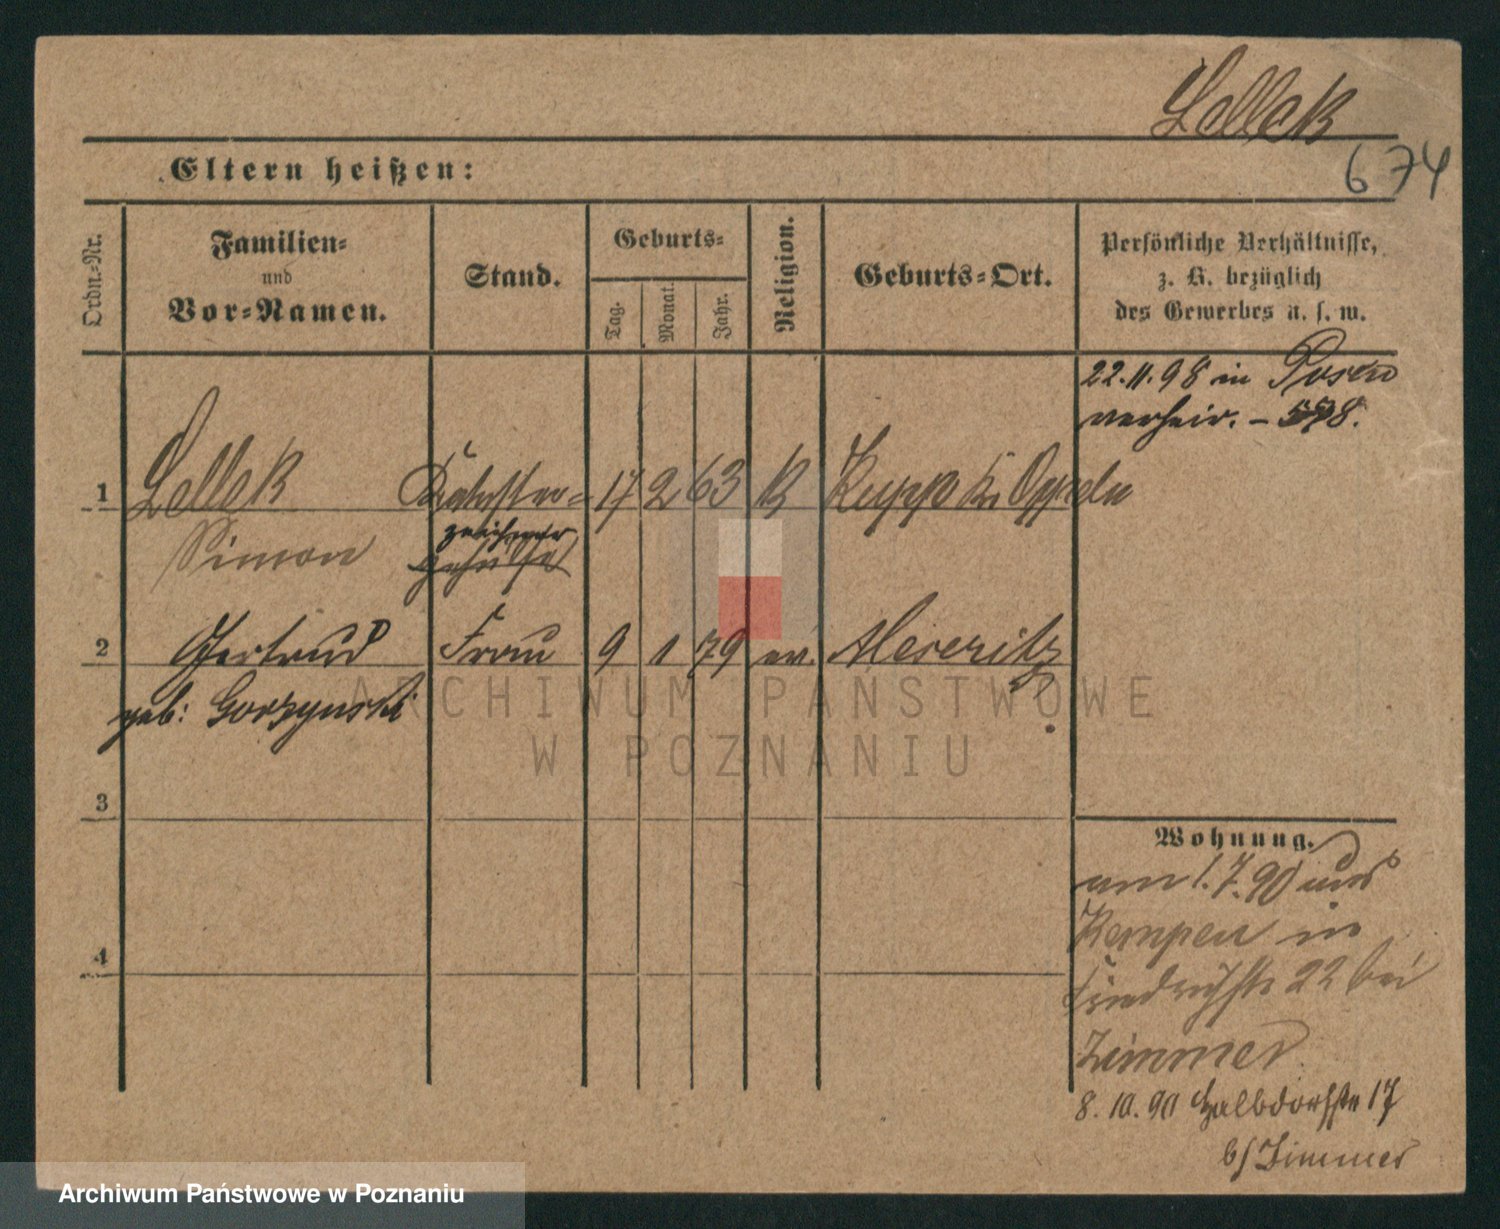 Lellek
674
Eltern heißen:
Ordn.-Nr.
Familien-
und
Vor-Namen.
Stand.
Geburts-
Tag.
Monat.
Jahr.
Religion.
Geburts-Ort.
Persönliche Verhältnisse,
z. B. bezüglich
des Gewerbes u. s. w.
22.11.98 in Posen
verheir. - 578.
1 Lellek Kataster= 17 2 63 K Kupp Kr. Oppeln
Simon zeichner
gehülfe
2 Gertrud Frau 9 1 79 ev. Meseritz
geb: Gorzynski
3
4
Wohnung.
am 1.7.90 aus
Kempen in
Friedrichstr 22 bei
Zimmer
8.10.90 Halbdorfstr 17
b/ Zimmer
ARCHIWUM PAŃSTWOWE
W POZNANIU
Archiwum Państwowe w Poznaniu